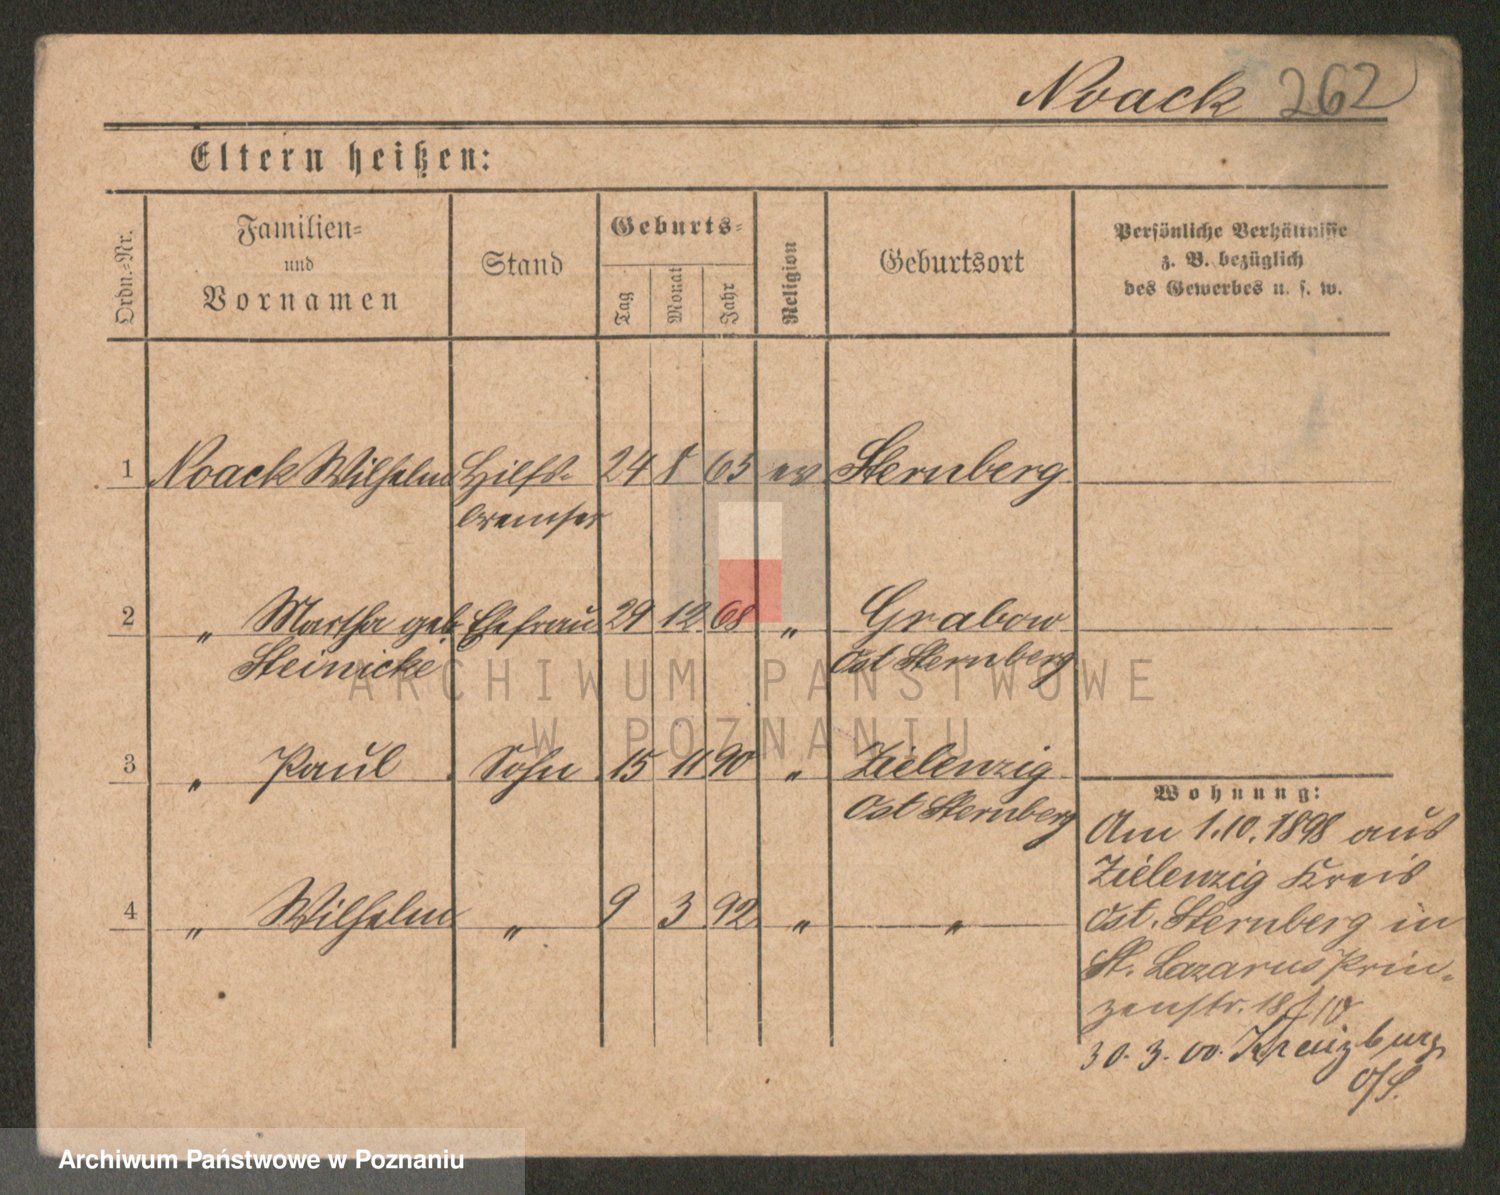 Noack 262
Eltern heißen:
Ordn.-Nr.
Familien-
und
Vornamen
Stand
Geburts-
Tag
Monat
Jahr
Religion
Geburtsort
Persönliche Verhältnisse
z. B. bezüglich
des Gewerbes u. s. w.
1 Noack Wilhelm Hilfs- 24 8 65 ev Sternberg
bremser
2 " Martha geb Ehefrau 29 12 68 " Grabow
Steinicke Ost Sternberg
3 " Paul Sohn 15 11 90 " Zielenzig
Ost Sternberg
4 " Wilhelm " 9 3 92 " "
Wohnung:
Am 1.10.1898 aus
Zielenzig Kreis
Ost. Sternberg in
St. Lazarus Prin-
zenstr. 18
30.3.00. Kreuzburg
O/S.
ARCHIWUM PAŃSTWOWE
W POZNANIU
Archiwum Państwowe w Poznaniu